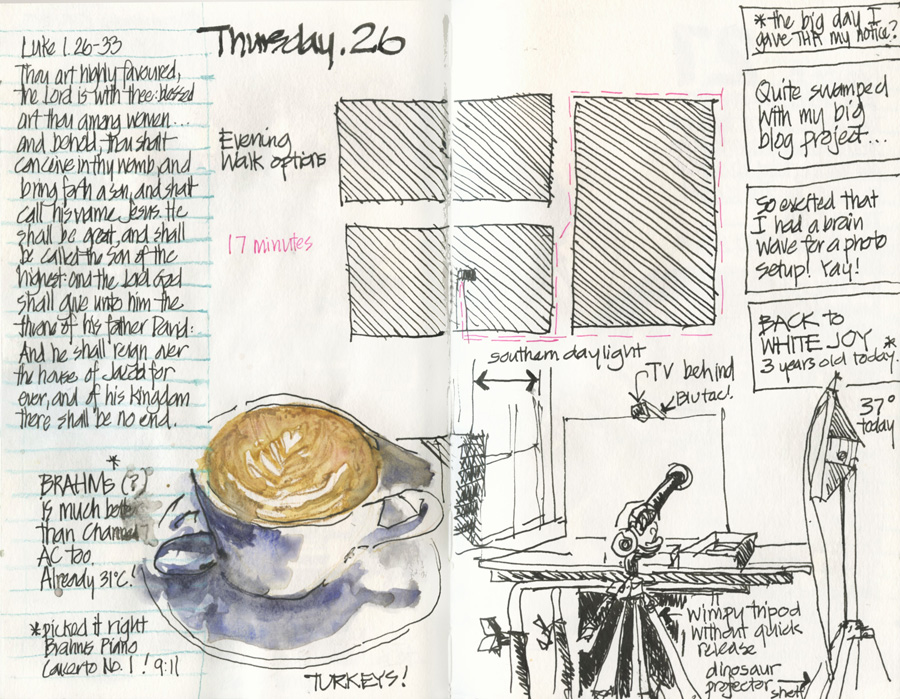 Luke 1. 26-33
Thou art highly favoured,
the Lord is with thee: blessed
art thou among women...
and behold, thou shalt
conceive in thy womb, and
bring forth a son, and shalt
call his name Jesus. He
shall be great, and shall
be called the Son of the
highest: and the Lord God
shall give unto him the
throne of his father David:
And he shall reign over
the house of Jacob for
ever, and of his kingdom
there shall be no end.
*
BRAHMS (?)
is much better
than Channel
AC too.
Already 31°C!
*picked it right
Brahms Piano
Concerto No. 1! 9:11
Thursday. 26
Evening
Walk options
17 minutes
TURKEYS!
*the big day I
gave THR my notice?
Quite swamped
with my big
blog project...
So excited that
I had a brain
wave for a photo
setup! Yay!
BACK TO
WHITE JOY *
3 years old today.
southern daylight
TV behind
Blutac!
37°
today
wimpy tripod
without quick
release
dinosaur
projector
shelf